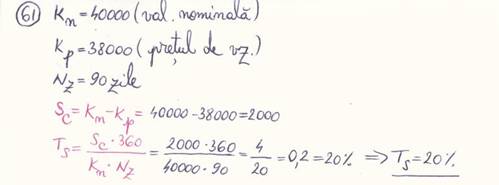 61 K_n=40000 (val. nominală)
K_p=38000 (prețul de vz.)
N_z=90 zile
S_c=K_n-K_p=40000-38000=2000
T_s=\frac{S_c·360}{K_n·N_z}=\frac{2000·360}{40000·90}=\frac{4}{20}=0,2=20% ⇒T_s=20%.